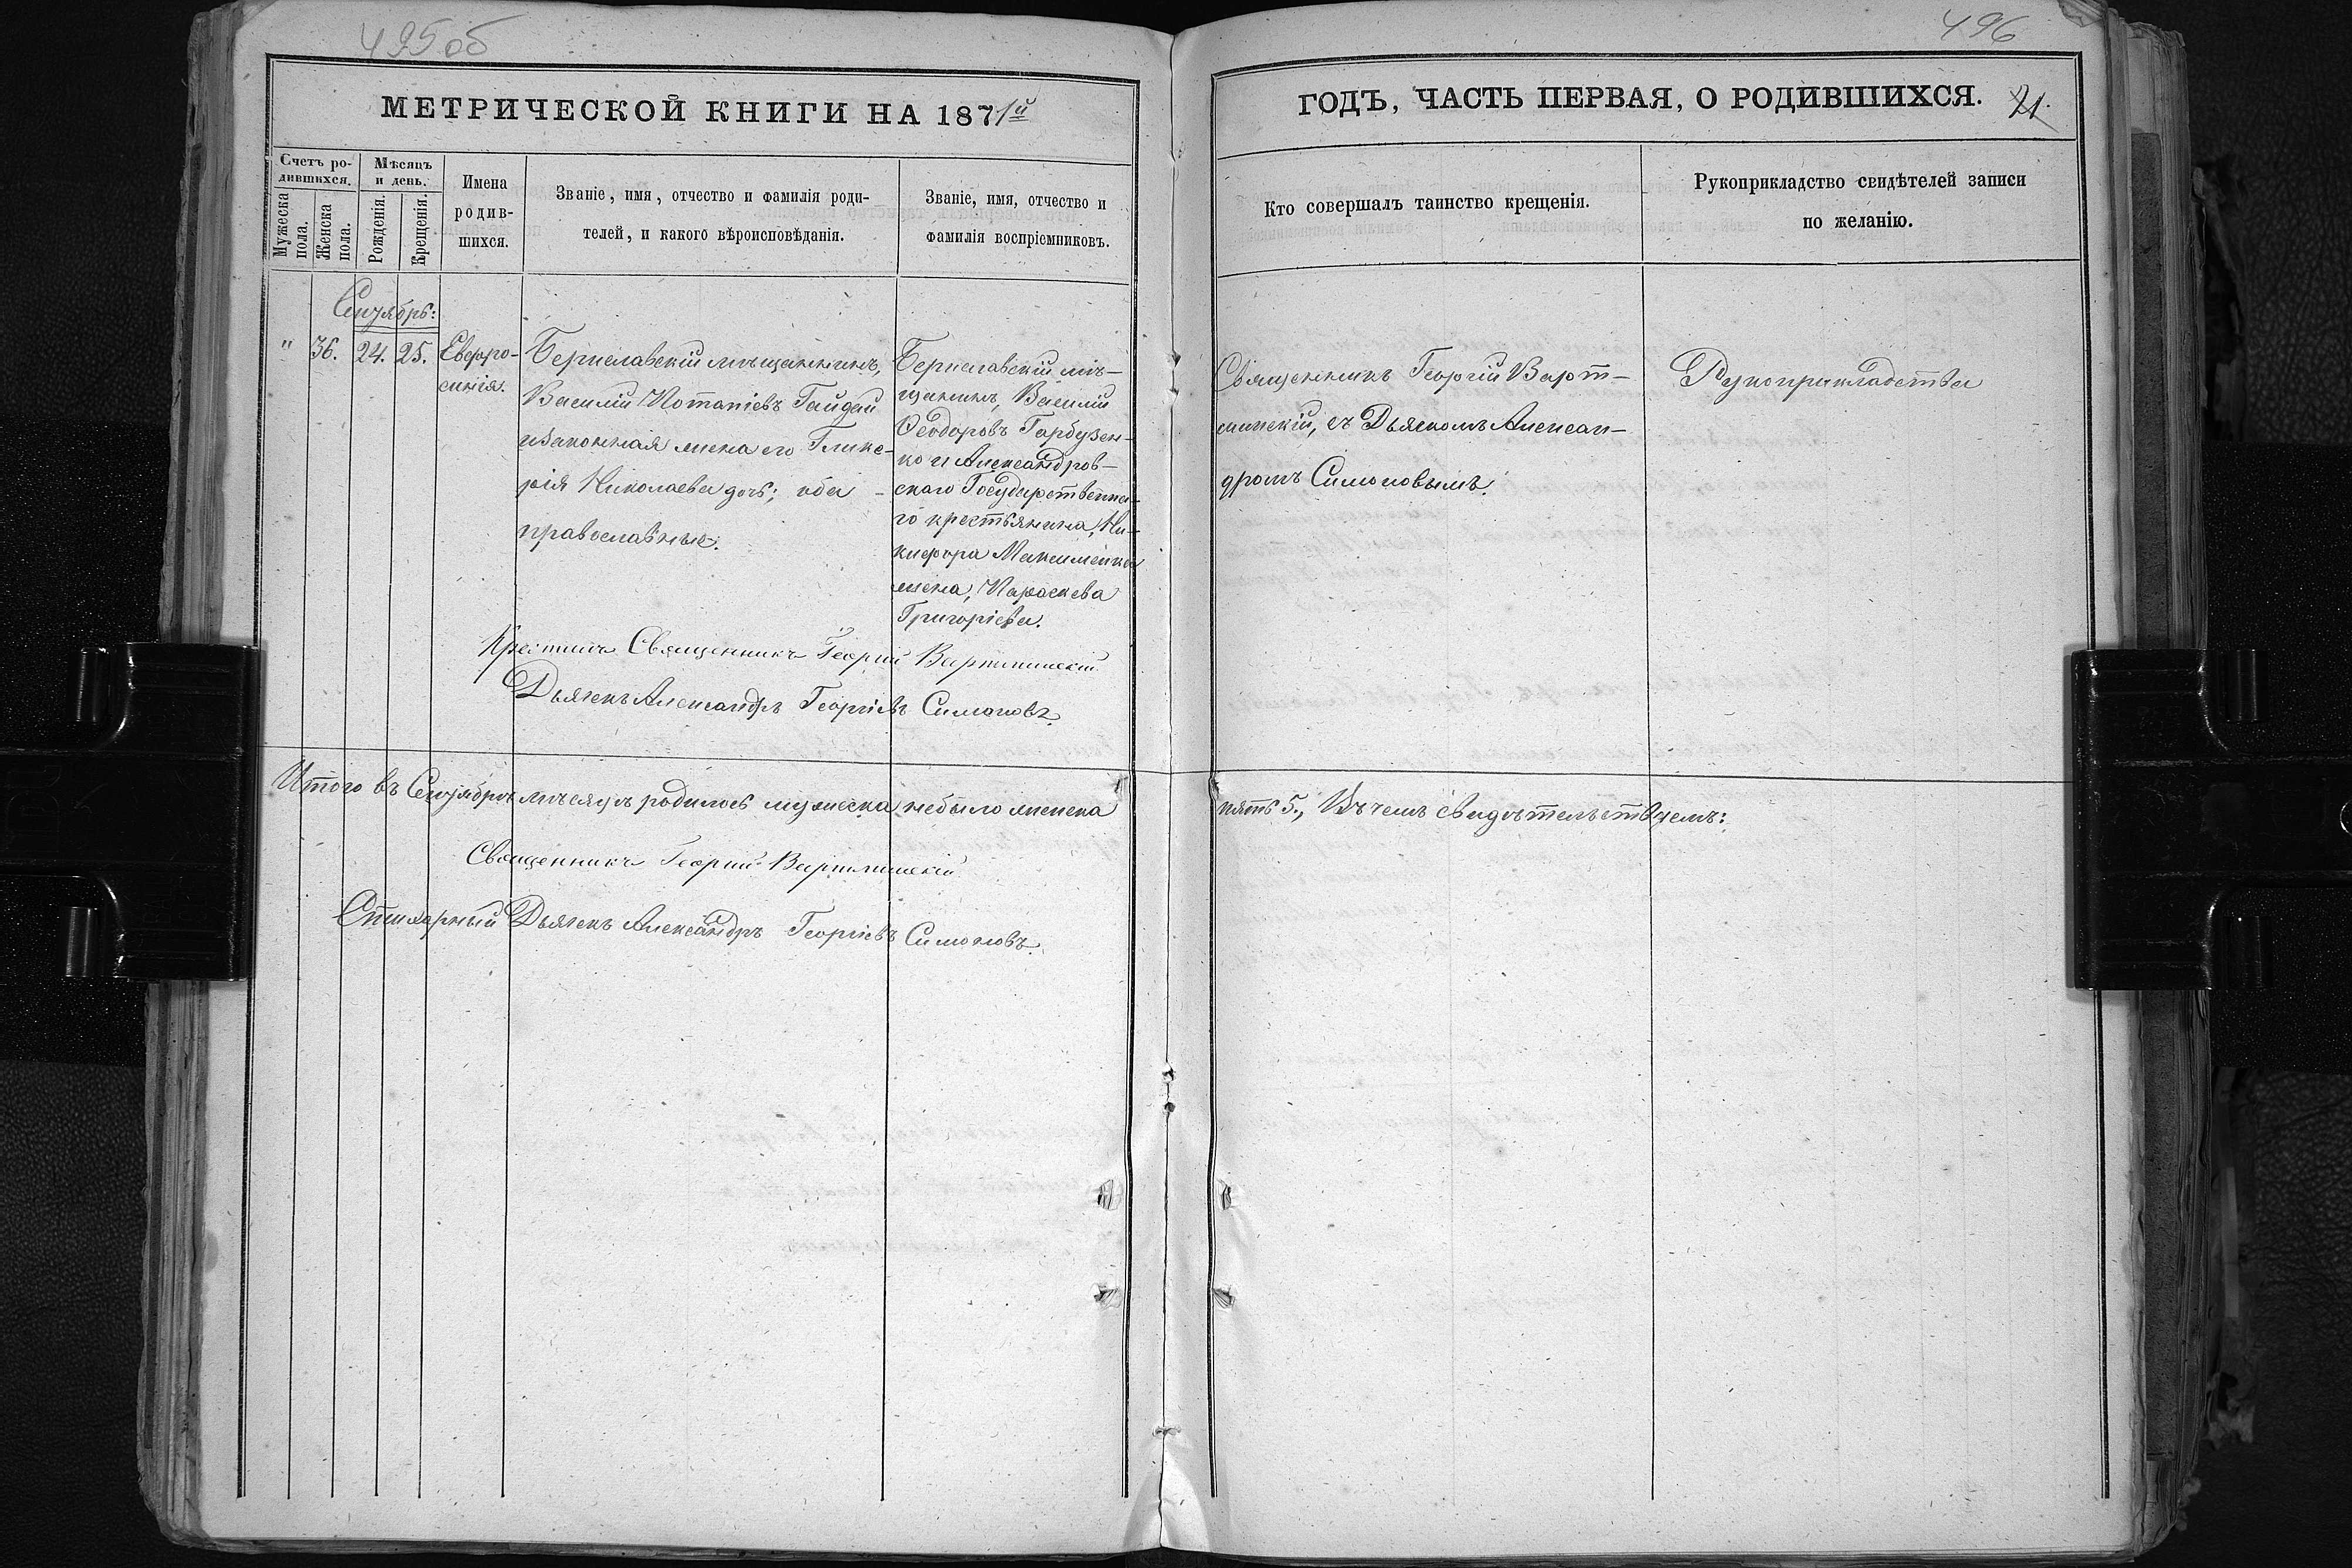 495об
МЕТРИЧЕСКОЙ КНИГИ НА 1871й
Счетъ ро-
дившихся.
Мѣсяцъ
и день.
Мужеска
пола.
Женска
пола.
Рожденія.
Крещенія.
Имена
родив-
шихся.
Званіе, имя, отчество и фамилія роди-
телей, и какого вѣроисповѣданія.
Званіе, имя, отчество и
фамилія воспріемниковъ.
Сентябрь:
" 36. 24. 25.
Евфро-
синія.
Бериславскій мѣщанинъ,
Василій Потапіевъ Гайдай
и законная жена его Глике-
рія Николаева дочь; оба -
православные.
Бериславскій мѣ-
щанинъ, Василій
Ѳеодоровъ Гарбузен-
ко и Александров-
скаго Государственна-
го крестьянина, Ни-
кифора Максименка
жена, Параскева
Григоріева.
Крестилъ Священникъ Георгій Вартминскій
Дьячекъ Александръ Георгіевъ Симоновъ.
Итого въ Сентябрѣ мѣсяцѣ родилось мужеска небыло женска
Священникъ Георгій Вартминскій
Стихарный Дьячекъ Александръ Георгіевъ Симоновъ.
496
ГОДЪ, ЧАСТЬ ПЕРВАЯ, О РОДИВШИХСЯ. 21.
Кто совершалъ таинство крещенія.
Рукоприкладство свидѣтелей записи
по желанію.
Священникъ Георгій Варт-
минскій, съ Дьячкомъ Алексан-
дромъ Симоновымъ.
Рукоприкладства
пять 5., Въ чемъ свидѣтельствуемъ: